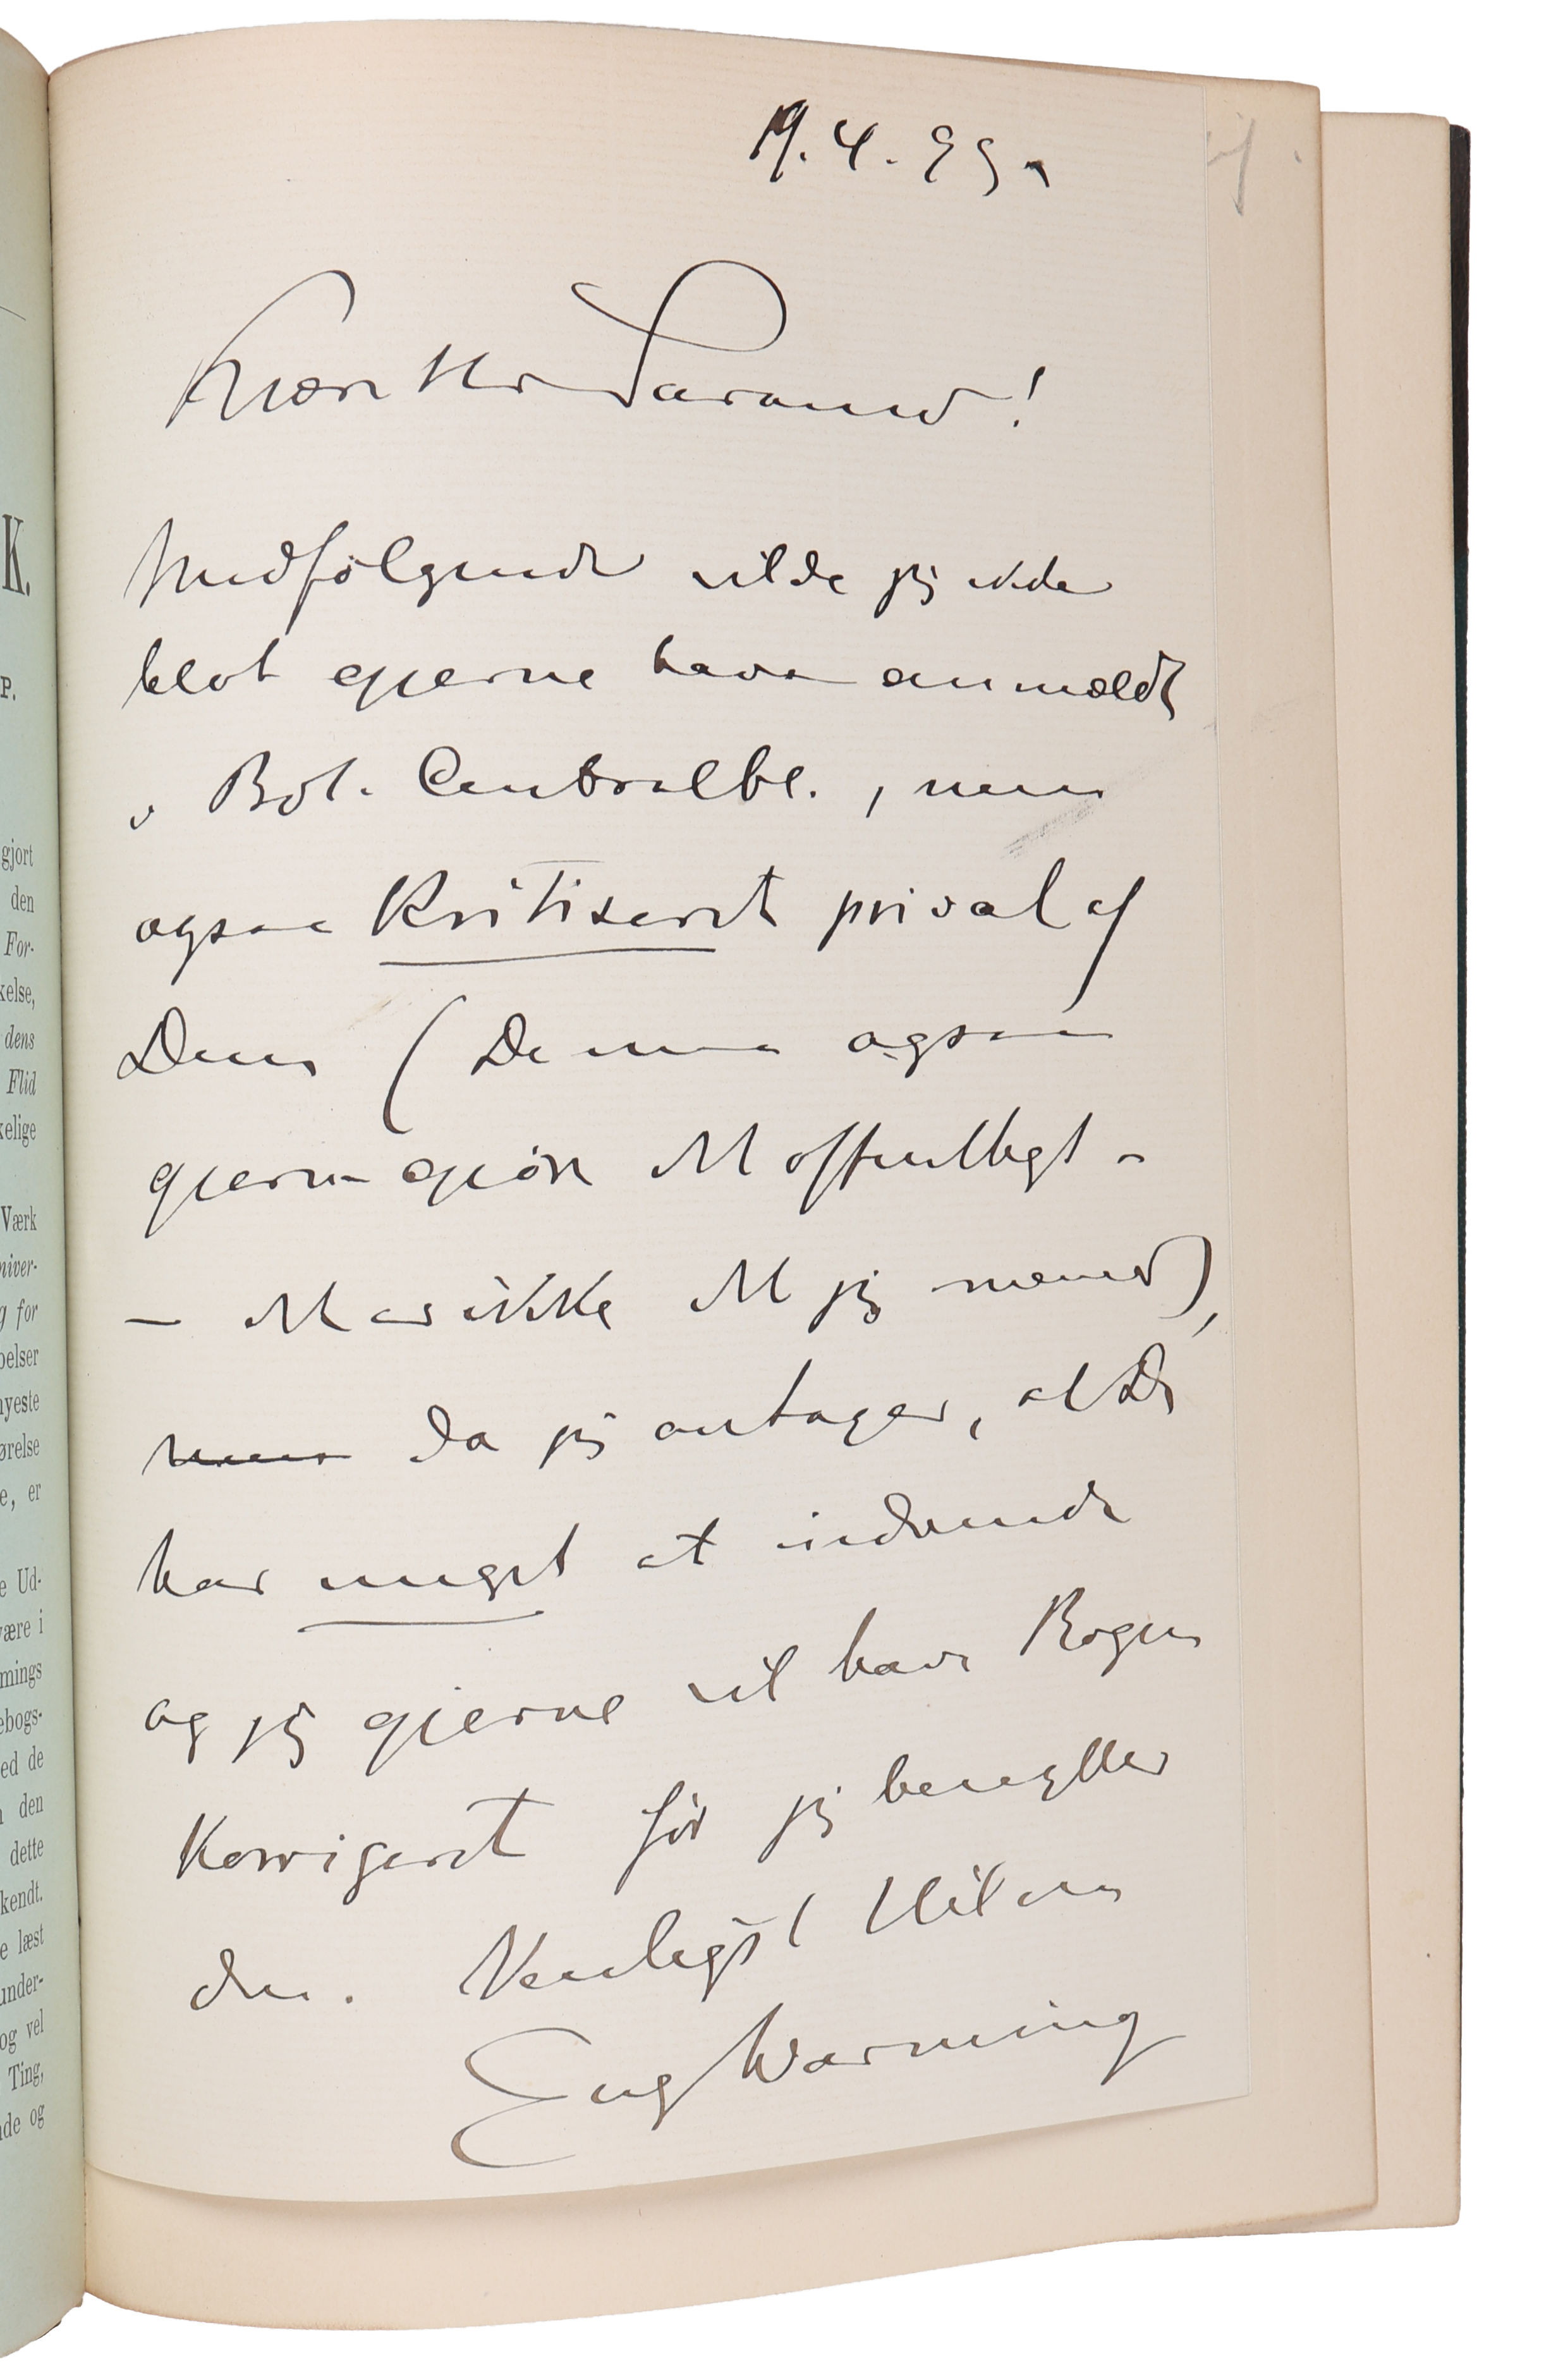 K.
P.
gjort
den
For-
kelse,
dens
Flid
kelige
Værk
niver-
g for
oelser
nyeste
ørelse
e, er
e Ud-
være i
mings
ebogs-
ed de
den
dette
kendt.
e læst
under-
og vel
Ting,
de og
19.4.99.
Kære Hr
Medfølgende vilde jeg ikke
blot gjerne have anmeldt
i Bot. Centralbl., men
ogsaa kritiseret privat af
Dem (De maa ogsaa
gjerne gjøre det offentligt -
- det er ikke det jeg mener),
men da jeg antager, at De
har meget at indvende
og jeg gjerne vil have Bogen
korrigeret før jeg benytter
den. Venligst Hilsen
Eug Warming